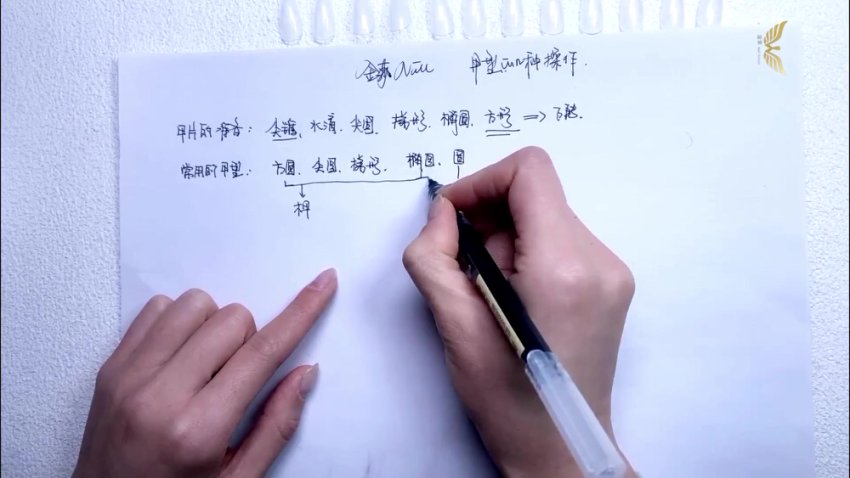 Nail 甲型的N种操作.
甲片的 : 尖 、水滴、尖圆、梯形、椭圆、方形 ⇒
常用的甲型: 方圆、尖圆、梯形、椭圆、圆
↓